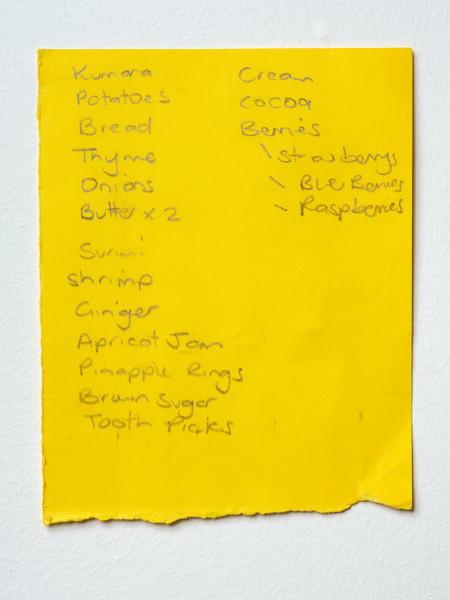 Kumara
Potatoes
Bread
Thyme
Onions
Butter x 2
Surimi
shrimp
Ginger
Apricot Jam
Pinapple Rings
Brown Sugar
Tooth Picks
Cream
Cocoa
Berries
\ Strawberrys
\ Blue Berries
- Raspberries